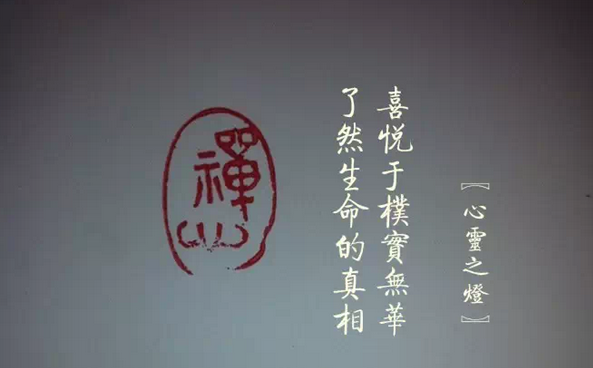 〖心靈之燈〗
喜悅于樸實無華
了然生命的真相
禪